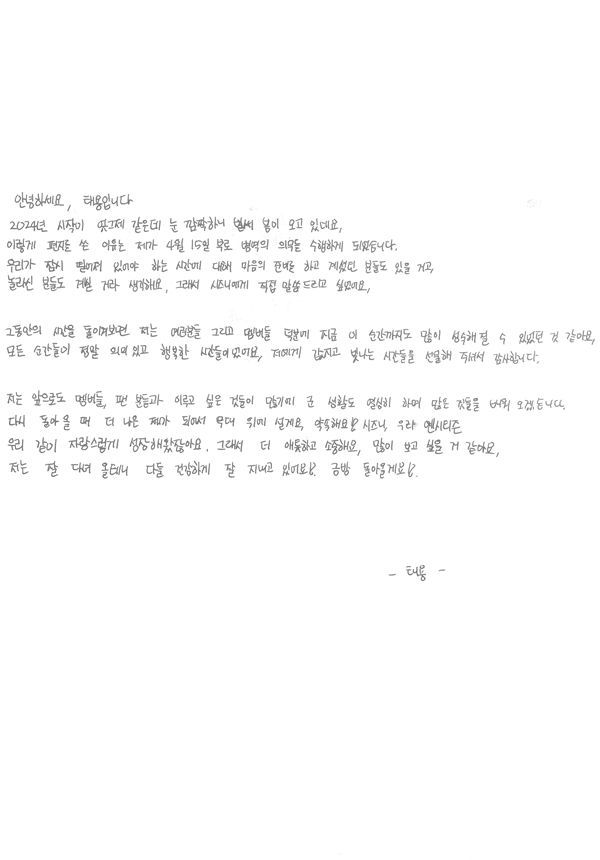 안녕하세요, 태용입니다
2024년 시작이 엊그제 같은데 눈 깜짝하니 벌써 봄이 오고 있네요,
이렇게 편지를 쓴 이유는 제가 4월 15일 부로 병역의 의무를 수행하게 되었습니다.
우리가 잠시 떨어져 있어야 하는 시간에 대해 마음의 준비를 하고 계셨던 분들도 있을 거고,
놀라신 분들도 계실 거라 생각해요, 그래서 시즈니에게 직접 말씀드리고 싶었어요,
그동안의 시간을 돌이켜보면 저는 여러분들 그리고 멤버들 덕분에 지금 이 순간까지도 많이 성숙해질 수 있었던 것 같아요,
모든 순간들이 정말 의미있고 행복한 시간들이었어요, 저에게 값지고 빛나는 시간들을 선물해 주셔서 감사합니다.
저는 앞으로도 멤버들, 팬 분들과 이루고 싶은 것들이 많기에 군 생활도 열심히 하며 많은 것들을 배워 오겠습니다.
다시 돌아올 때 더 나은 제가 되어서 무대 위에 설게요, 약속해요! 시즈니, 우리 엔시티즌
우리 같이 자랑스럽게 성장해왔잖아요. 그래서 더 애틋하고 소중해요, 많이 보고 싶을 거 같아요,
저는 잘 다녀 올테니 다들 건강하게 잘 지내고 있어요!. 금방 돌아올게요!.
- 태용 -